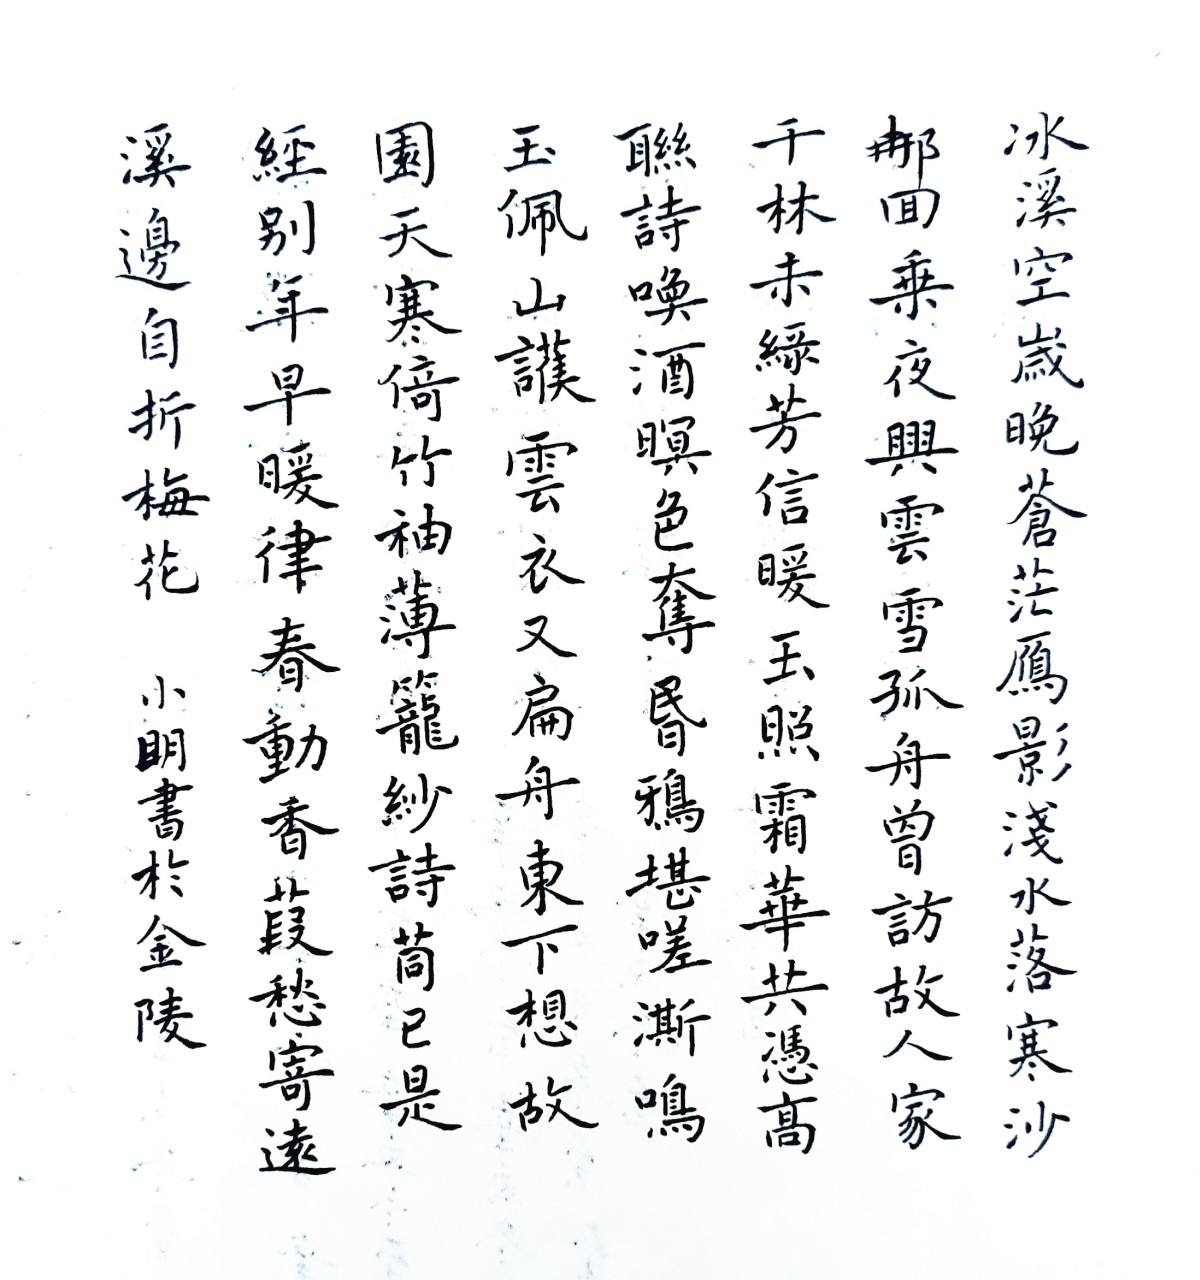 冰溪空歲晚蒼茫鴈影淺水落寒沙
那囬乗夜興雲雪孤舟曾訪故人家
千林未綠芳信暖玉照霜華共憑高
聯詩喚酒暝色奪昬鴉堪嗟澌鳴
玉佩山護雲衣又扁舟東下想故
園天寒倚竹袖薄籠紗詩筒已是
經别年早暖律春動香葭愁寄遠
溪邊自折梅花 小明書於金陵